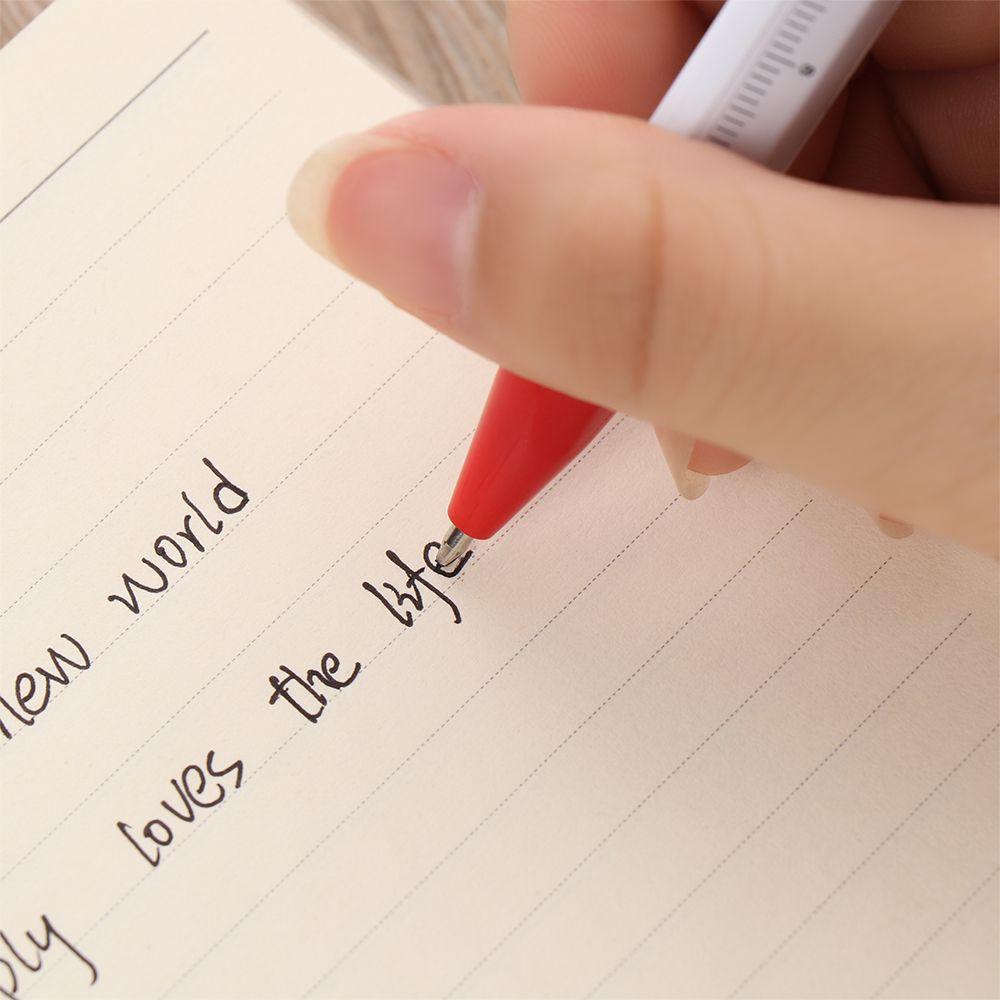 new world
ply loves the life